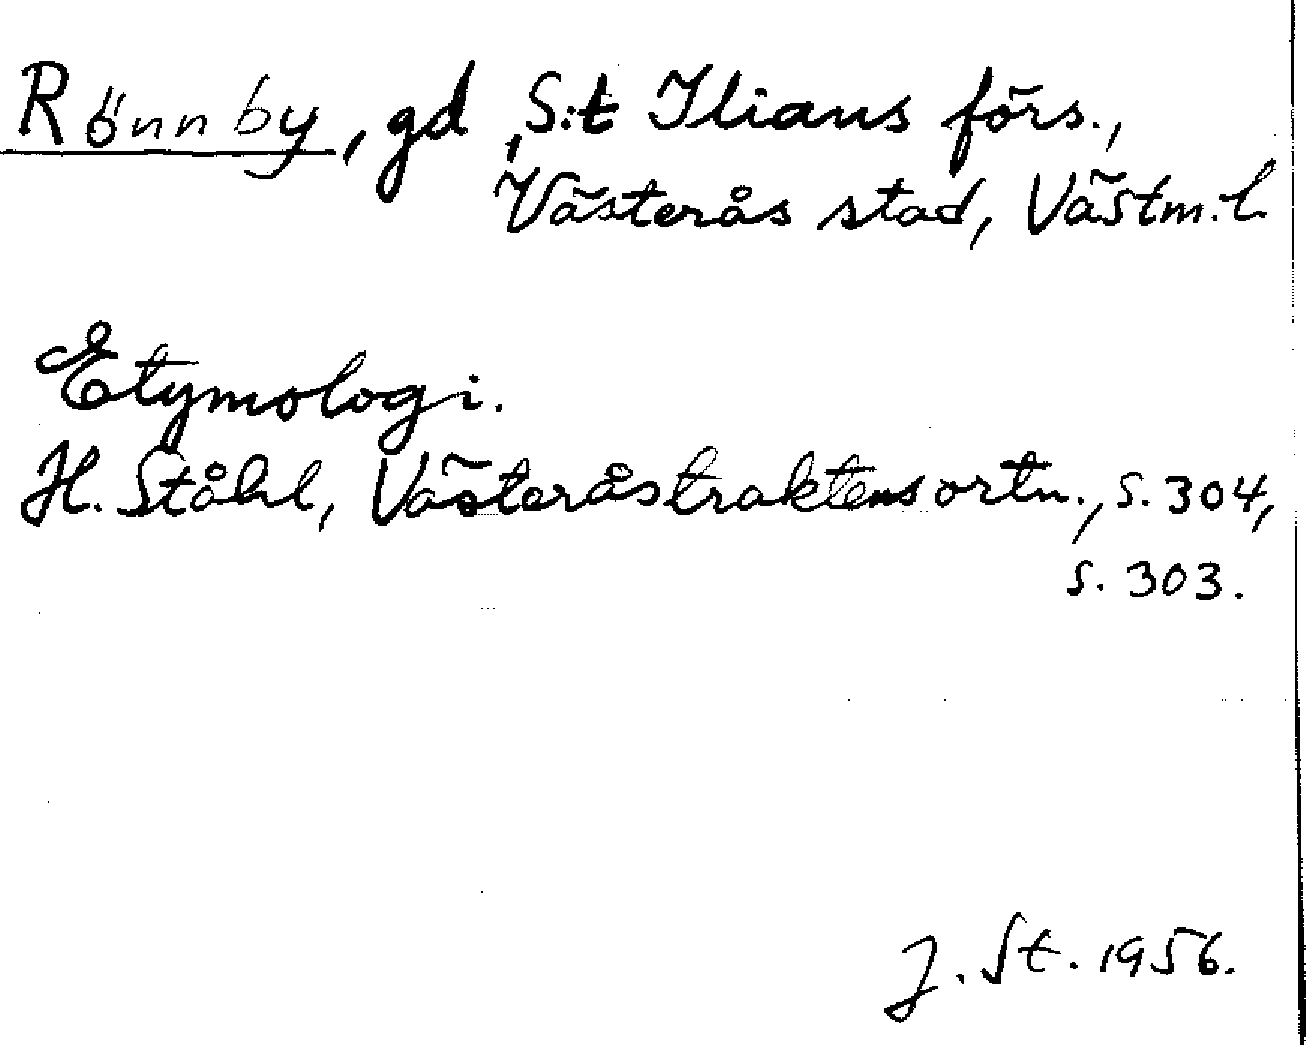 Rönnby, gd, S:t Ilians förs.,
Västerås stad, Västm.l.
Etymologi.
H. Ståhl, Västeråstraktens ortn., s. 304,
s. 303.
J. St. 1956.